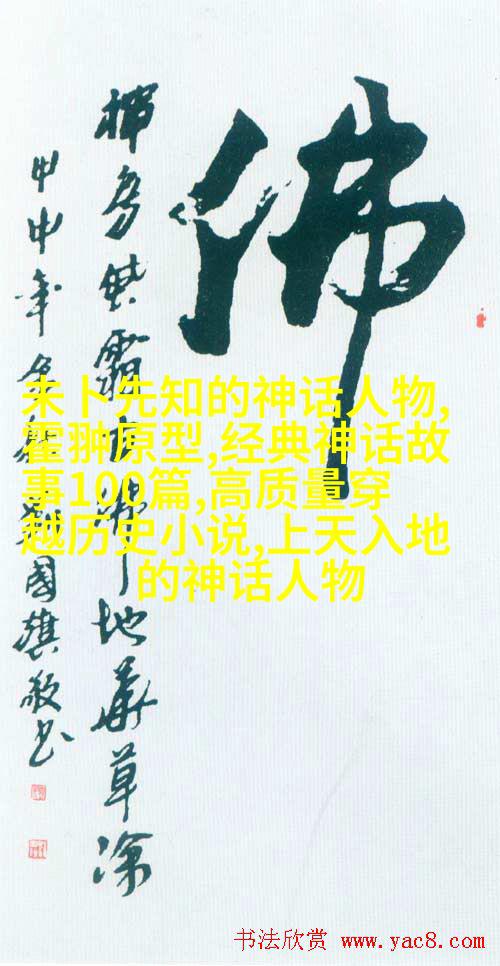 佛
地 草
甲申年 國旗敬书
未卜先知的神话人物,
霍翀原型,经典神话故
事100篇,高质量穿
越历史小说,上天入地
的神话人物
书法欣赏 www.yac8.com